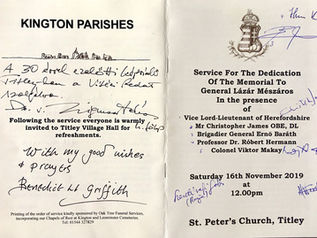 KINGTON PARISHES
A 30
Following the service everyone is warmly
invited to Titley Village Hall for
refreshments.
With my good wishes
& prayers
Benedict Griffith
Printing of the order of service kindly sponsored by Oak Tree Funeral Services,
incorporating our Chapels of Rest at Kington and Leominster Cemeteries.
Tel: 01544 327829
Service For The Dedication
Of The Memorial To
General Lázár Mészáros
In the presence
of
Vice Lord-Lieutenant of Herefordshire
Mr Christopher James OBE, DL
Brigadier General Ernö Baráth
Professor Dr. Róbert Hermann
Colonel Viktor Makay
Saturday 16th November 2019
at
12.00pm
St. Peter's Church, Titley